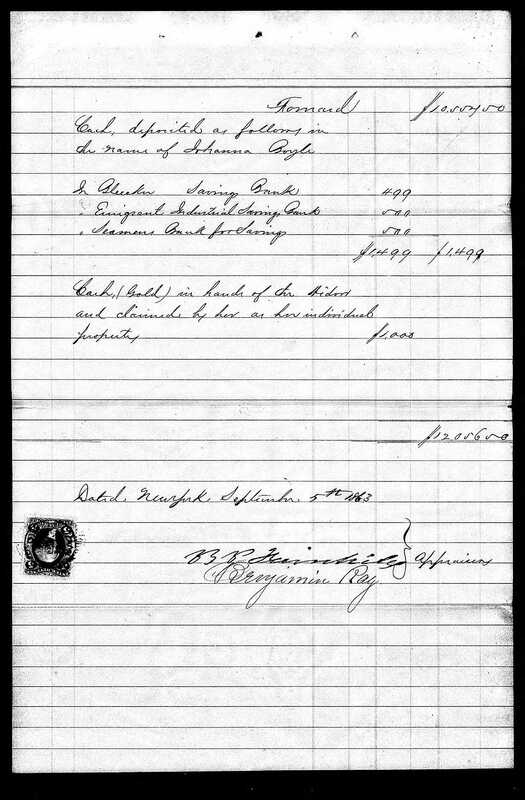 Forward $10.557.50
Cash, deposited as follows in
the name of Johanna Boyle
In Bleecker Saving Bank 499
" Emigrant Industrial Saving Bank 500
" Seamens Bank for Savings 500
$1,499 $1,499
Cash, (Gold) in hands of the Widow
and claimed by her as her individual
property $1,000
$12056.50
Dated New York September 5th 1863
B P
Benjamin Ray } Appraisers